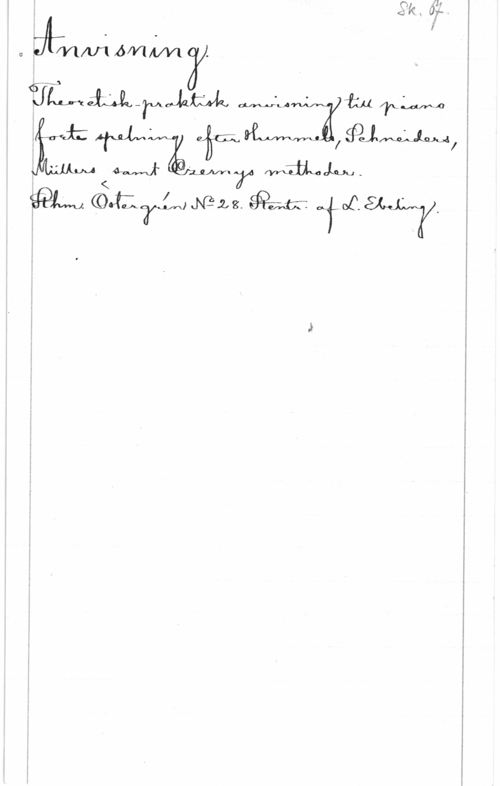 Sk. 67.
Anvisning.
Theoretisk-praktisk anvisning till piano
forte spelning efter Hummels, Schneiders,
Müllers samt Czernys methoder.
Sthm. Östergrén Nº 28. Stentr. af L. Ebeling.